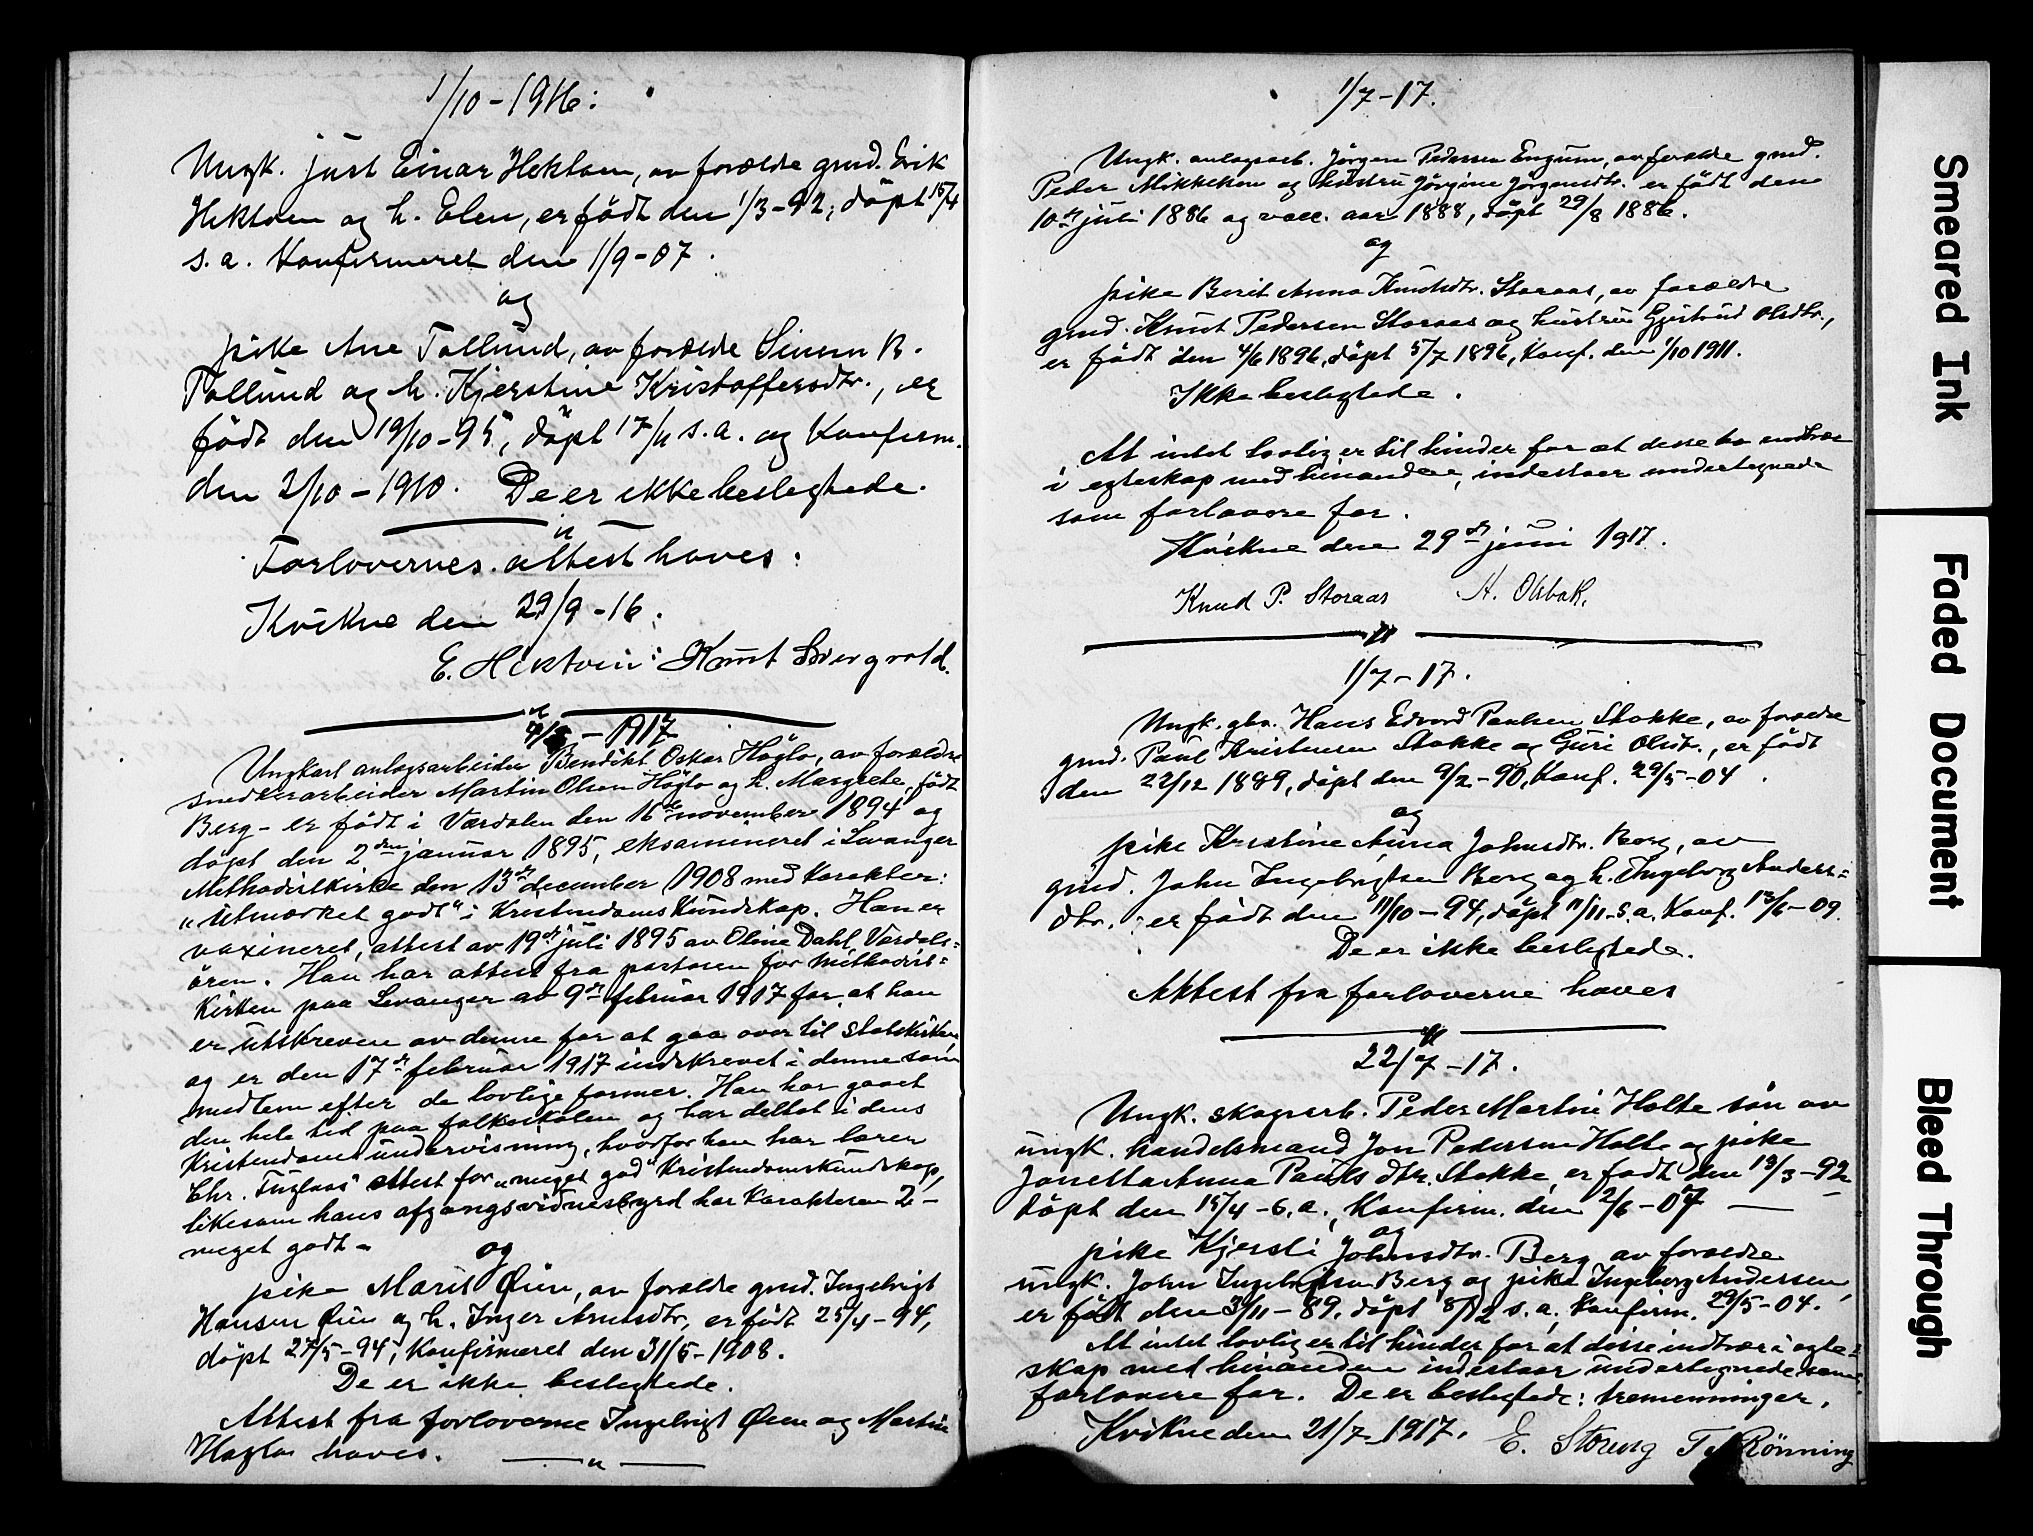 1/10-1916:
Ungk. Just Einar Hektoen, av forældre grnd. Erik
Hektoen og h. Elen, er födt den 1/3-92, döpt 15/4
s.a. Konfirmeret den 1/9-07.
og
pike Ane Tollund, av forældre Simen B.
Tollund og h. Kjerstine Kristoffersdtr., er
födt den 19/10-95, döpt 17/11 s.a. og Konfirm.
den 2/10-1910. De er ikke beslegtede.
Forlovernes attest haves:
Kvikne den 29/9-16.
E. Hektoen: Knut Bergvold.
-1917
Ungkarl anlægsarbeider Bendikt Oskar Höglo, av forældre
snedkerarbeider Martin Olsen Höglo og h. Margrete, födt
Berg - er födt i Værdalen den 16de november 1894 og
döpt den 2den januar 1895, eksamineret i Levanger
Methodistkirke den 13de december 1908 med karakter:
"utmærket godt" i Kristendomskundskap. Han er
vaxineret, attest av 19de juli 1895 av Oline Dahl, Værdals=
ören. Han har attest fra pastoren for Methodist=
kirken paa Levanger av 9de februar 1917 for, at han
er utskreven av denne for at gaa over til statskirken
og er den 17de februar 1917 indskrevet i denne som
medlem efter de lovlige former. Han har gaaet
den hele tid paa folkeskolen og har deltat i dens
Kristendomsundervisning, hvorfor han har lærer
Chr. Fuglaas' attest for "meget god" Kristendomskundskap,
likesom hans afgangsvidnesbyrd har karakteren 2-
meget godt-
og
pike Marit Øien, av forældre grnd. Ingebrigt
Hansen Øien og h. Inger Arntsdtr, er födt 25/4-94,
döpt 27/5-94, Konfirmeret den 31/5-1908.
De er ikke beslegtede.
Attest fra forloverne Ingebrigt Øien og Martin
Höglo haves.
1/7-17.
Ungk. anlægsarb. Jörgen Pedersen Engum, av forældre grnd.
Peder Mikkelsen og hustru Jörgine Jörgensdtr. er födt den
10de juli 1886 og vacc. aar 1888, döpt 29/8 1886.
og
pike Berit Anna Knutsdtr. Storaas, av forældre
grnd. Knut Pedersen Storaas og hustru Gjertrud Olsdtr.,
er födt den 4/6 1896, döpt 5/7 1896, Konf. den 1/10 1911.
Ikke beslegtede.
At intet lovlig er til hinder for at disse to indtræ
i egteskap med hinanden, indestaar undertegnede
som forlovere for.
Kvikne den 29de juni 1917.
Knud P. Storaas A. Olsbak.
1/7-17.
Ungk. gbr. Hans Edvard Paulsen Stokke, av forældre
grnd. Paul Kristensen Stokke og Guri Olsdtr., er födt
den 22/12 1889, döpt den 9/2-90, Konf. 29/5-04.
og
pike Kristine Anna Johnsdtr. Berg, av
grnd. John Ingebrigtsen Berg og h. Ingeborg Anders=
dtr. er födt den 11/10-94, döpt 11/11-s.a. Konf. 13/6-09.
De er ikke beslegtede.
Attest fra forloverne haves
22/7-17.
Ungk. skogsarb. Peder Martin Holte sön av
ungk. handelsmand Jon Pedersen Holte og pike
Jonetta Anna Pauls dtr. Stokke, er födt den 13/3-92
döpt den 15/4-s.a., Konfirm. den 2/6-07
og
pike Kjersti Johnsdtr. Berg av forældre
ungk. John Ingebrigtsen Berg og pike Ingeborg Andersen,
er födt den 3/11-89. döpt 8/12 s.a. Konfirm. 29/5-04.
At intet lovlig er til hinder for, at disse indtrær i egte=
skap med hinanden indestaar undertegnede som
forlovere for. De er beslegtede: tremenninger.
Kvikne den 21/7-1917. E. Storeng T. Rönning
Smeared Ink
Faded Document
Bleed Through